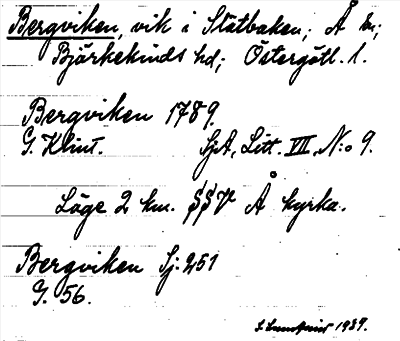 Bergviken, vik i Slätbaken; Å sn;
Björkekinds hd; Östergötl. l.
Bergviken 1789.
G. Klint. SjA, Litt. VII, N:o 9.
Läge 2 km. SSV Å kyrka.
Bergviken Sj. 251
G. 56.
1939.